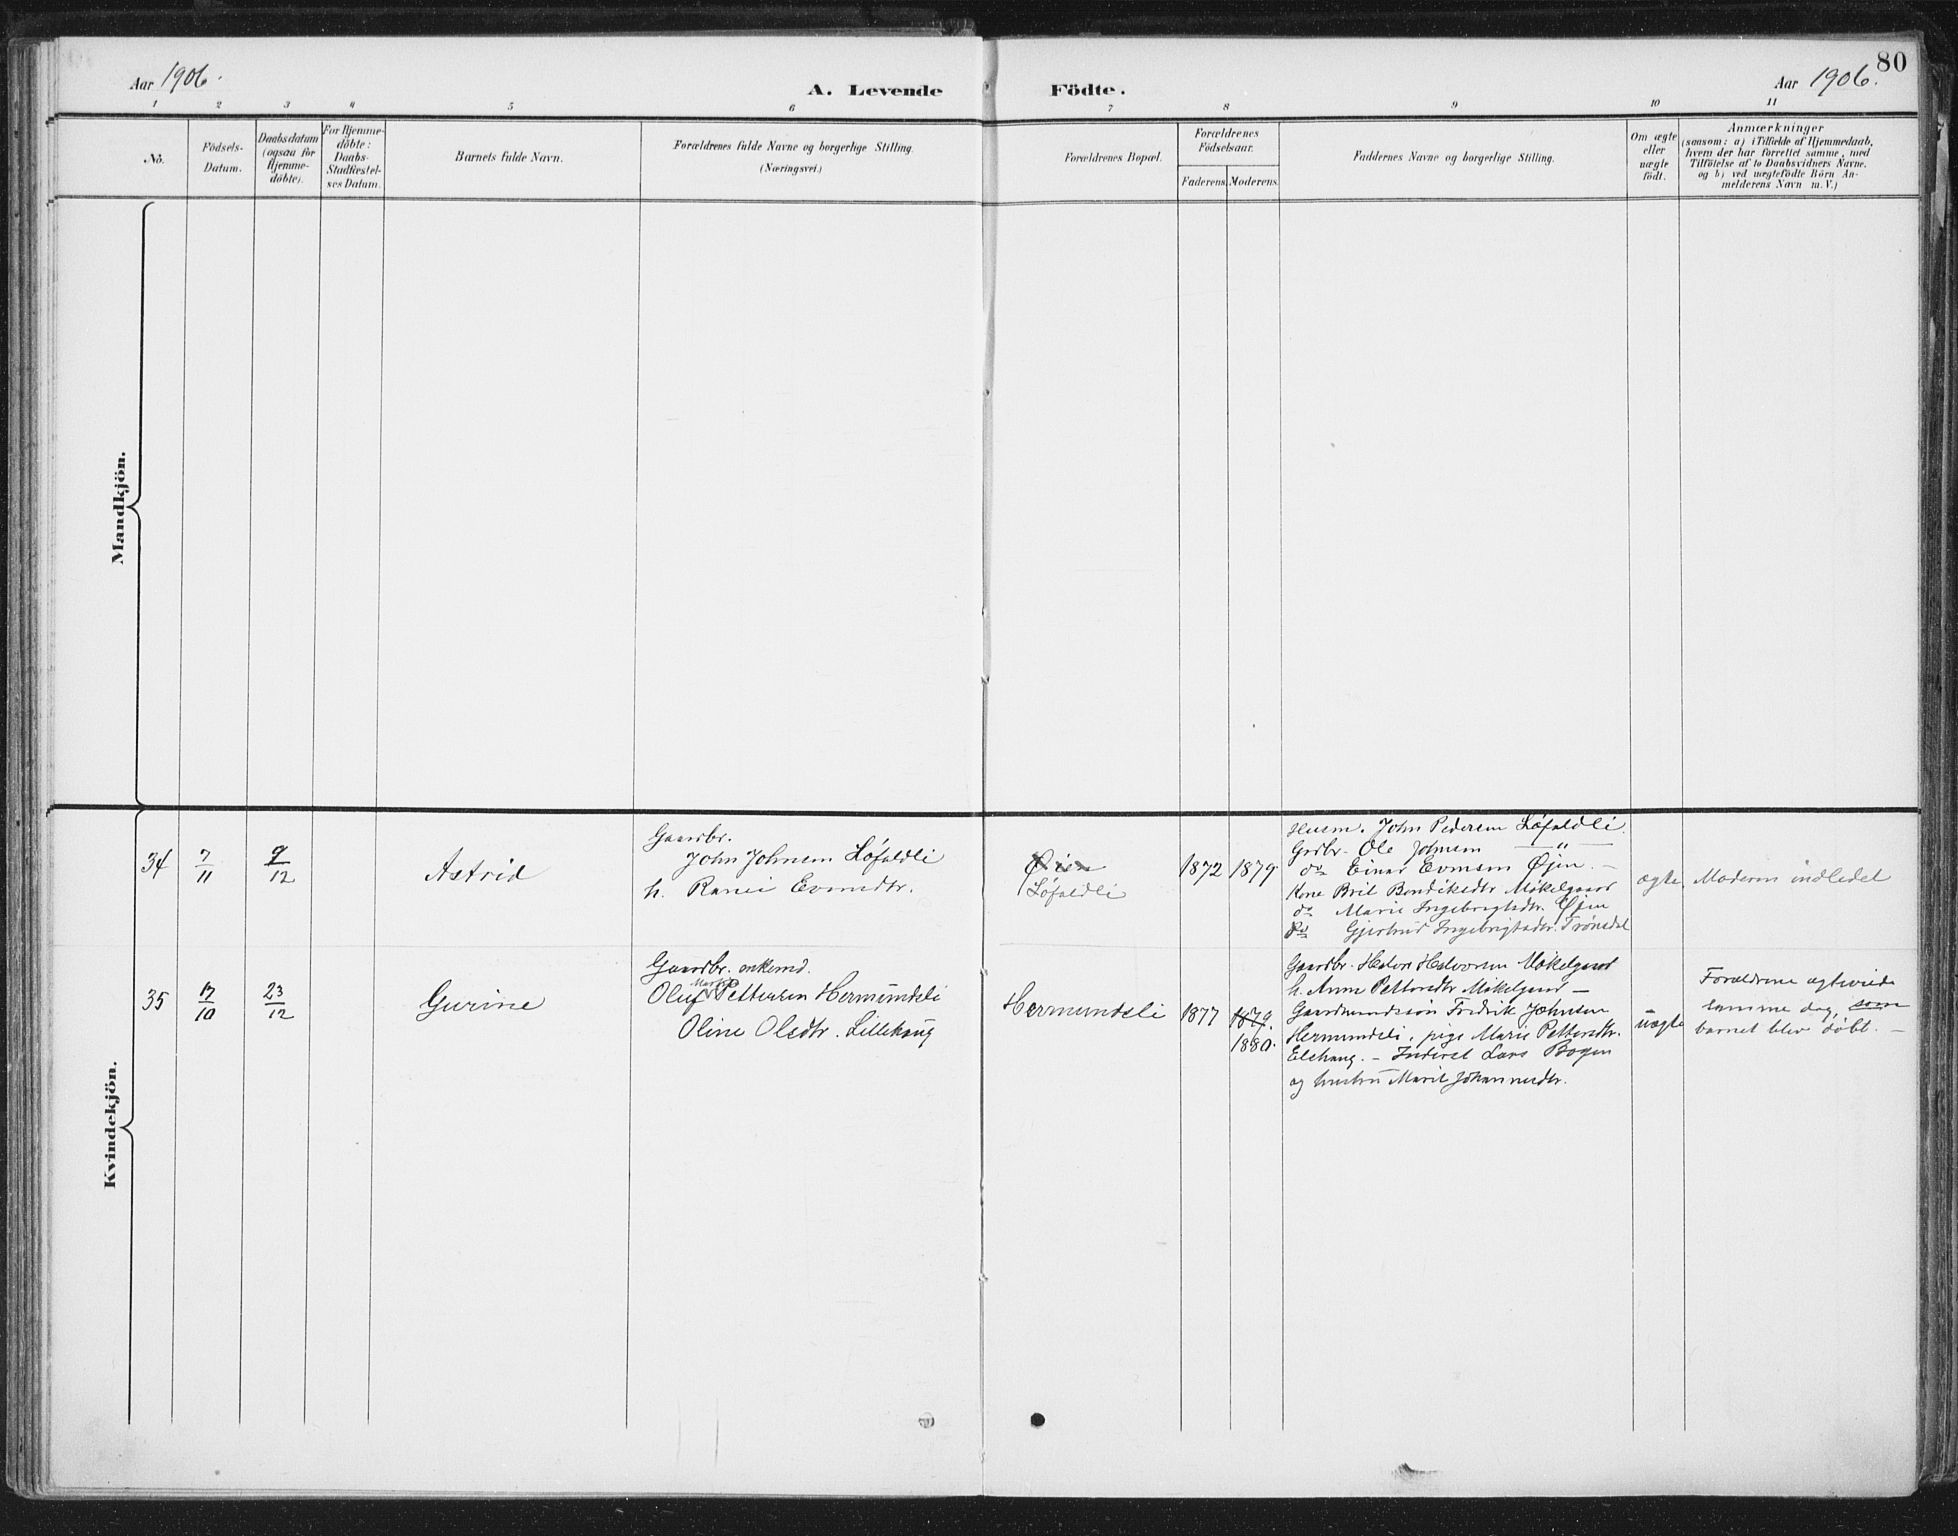 80
Aar 1906.
A. Levende Födte.
Aar 1906.
1 2 3 4 5 6 7 8 9 10 11
No.
Födsels-
Datum.
Daabsdatum
(ogsaa for
Hjemme-
döbte).
For Hjemme-
döbte:
Daabs-
Stadfestel-
ses Datum.
Barnets fulde Navn.
Forældrenes fulde Navne og borgerlige Stilling.
(Næringsvei.)
Forældrenes Bopæl.
Forældrenes
Födselsaar.
Faderens. Moderens.
Faddernes Navne og borgerlige Stilling.
Om ægte
eller
uægte
födt.
Anmærkninger
(saasom: a) i Tilfælde af Hjemmedaab,
hvem der har forrettet samme, med
Tilföielse af to Daabsvidners Navne.
og b) ved uægtefödte Börn An-
melderens Navn m. V.)
Mandkjön.
Kvindekjön.
34
7/11
9/12
Astrid
Gaardbr.
John Johnsen Løfaldli
h. Ranei Evensdtr.
Øien
Løfaldli
1872
1879
Husm. John Pedersen Løfaldli.
Grdbr. Ole Johnsen — " —
do Einar Evensen Øjen. —
Kone Brit Bendiksdtr Møkelgaard
do Marie Ingebrigtsdtr. Øjen
Gjertrud Ingebrigtsdtr. Trønsdal
ægte.
Moderen indledet
35
17/10
23/12
Gurine
Gaardbr. enkemd.
Oluf Pettersen Hermundsli
Oline Olsdtr. Lillehaug
Hermundsli
1877
1879.
1880.
Gaardbr. Halvor Halvorsen Møkelgaard
h. Anne Pettersdtr Møkelgaard —
Gaardmandssøn Fredrik Johnsen
Hermundsli, pige Marie Pettersdtr.
Elshaug. — Inderst Lars Bogen
og hustru Marit Johannesdtr.
uægte
Forældrene ægteviede
samme dag som
barnet blev døbt. —